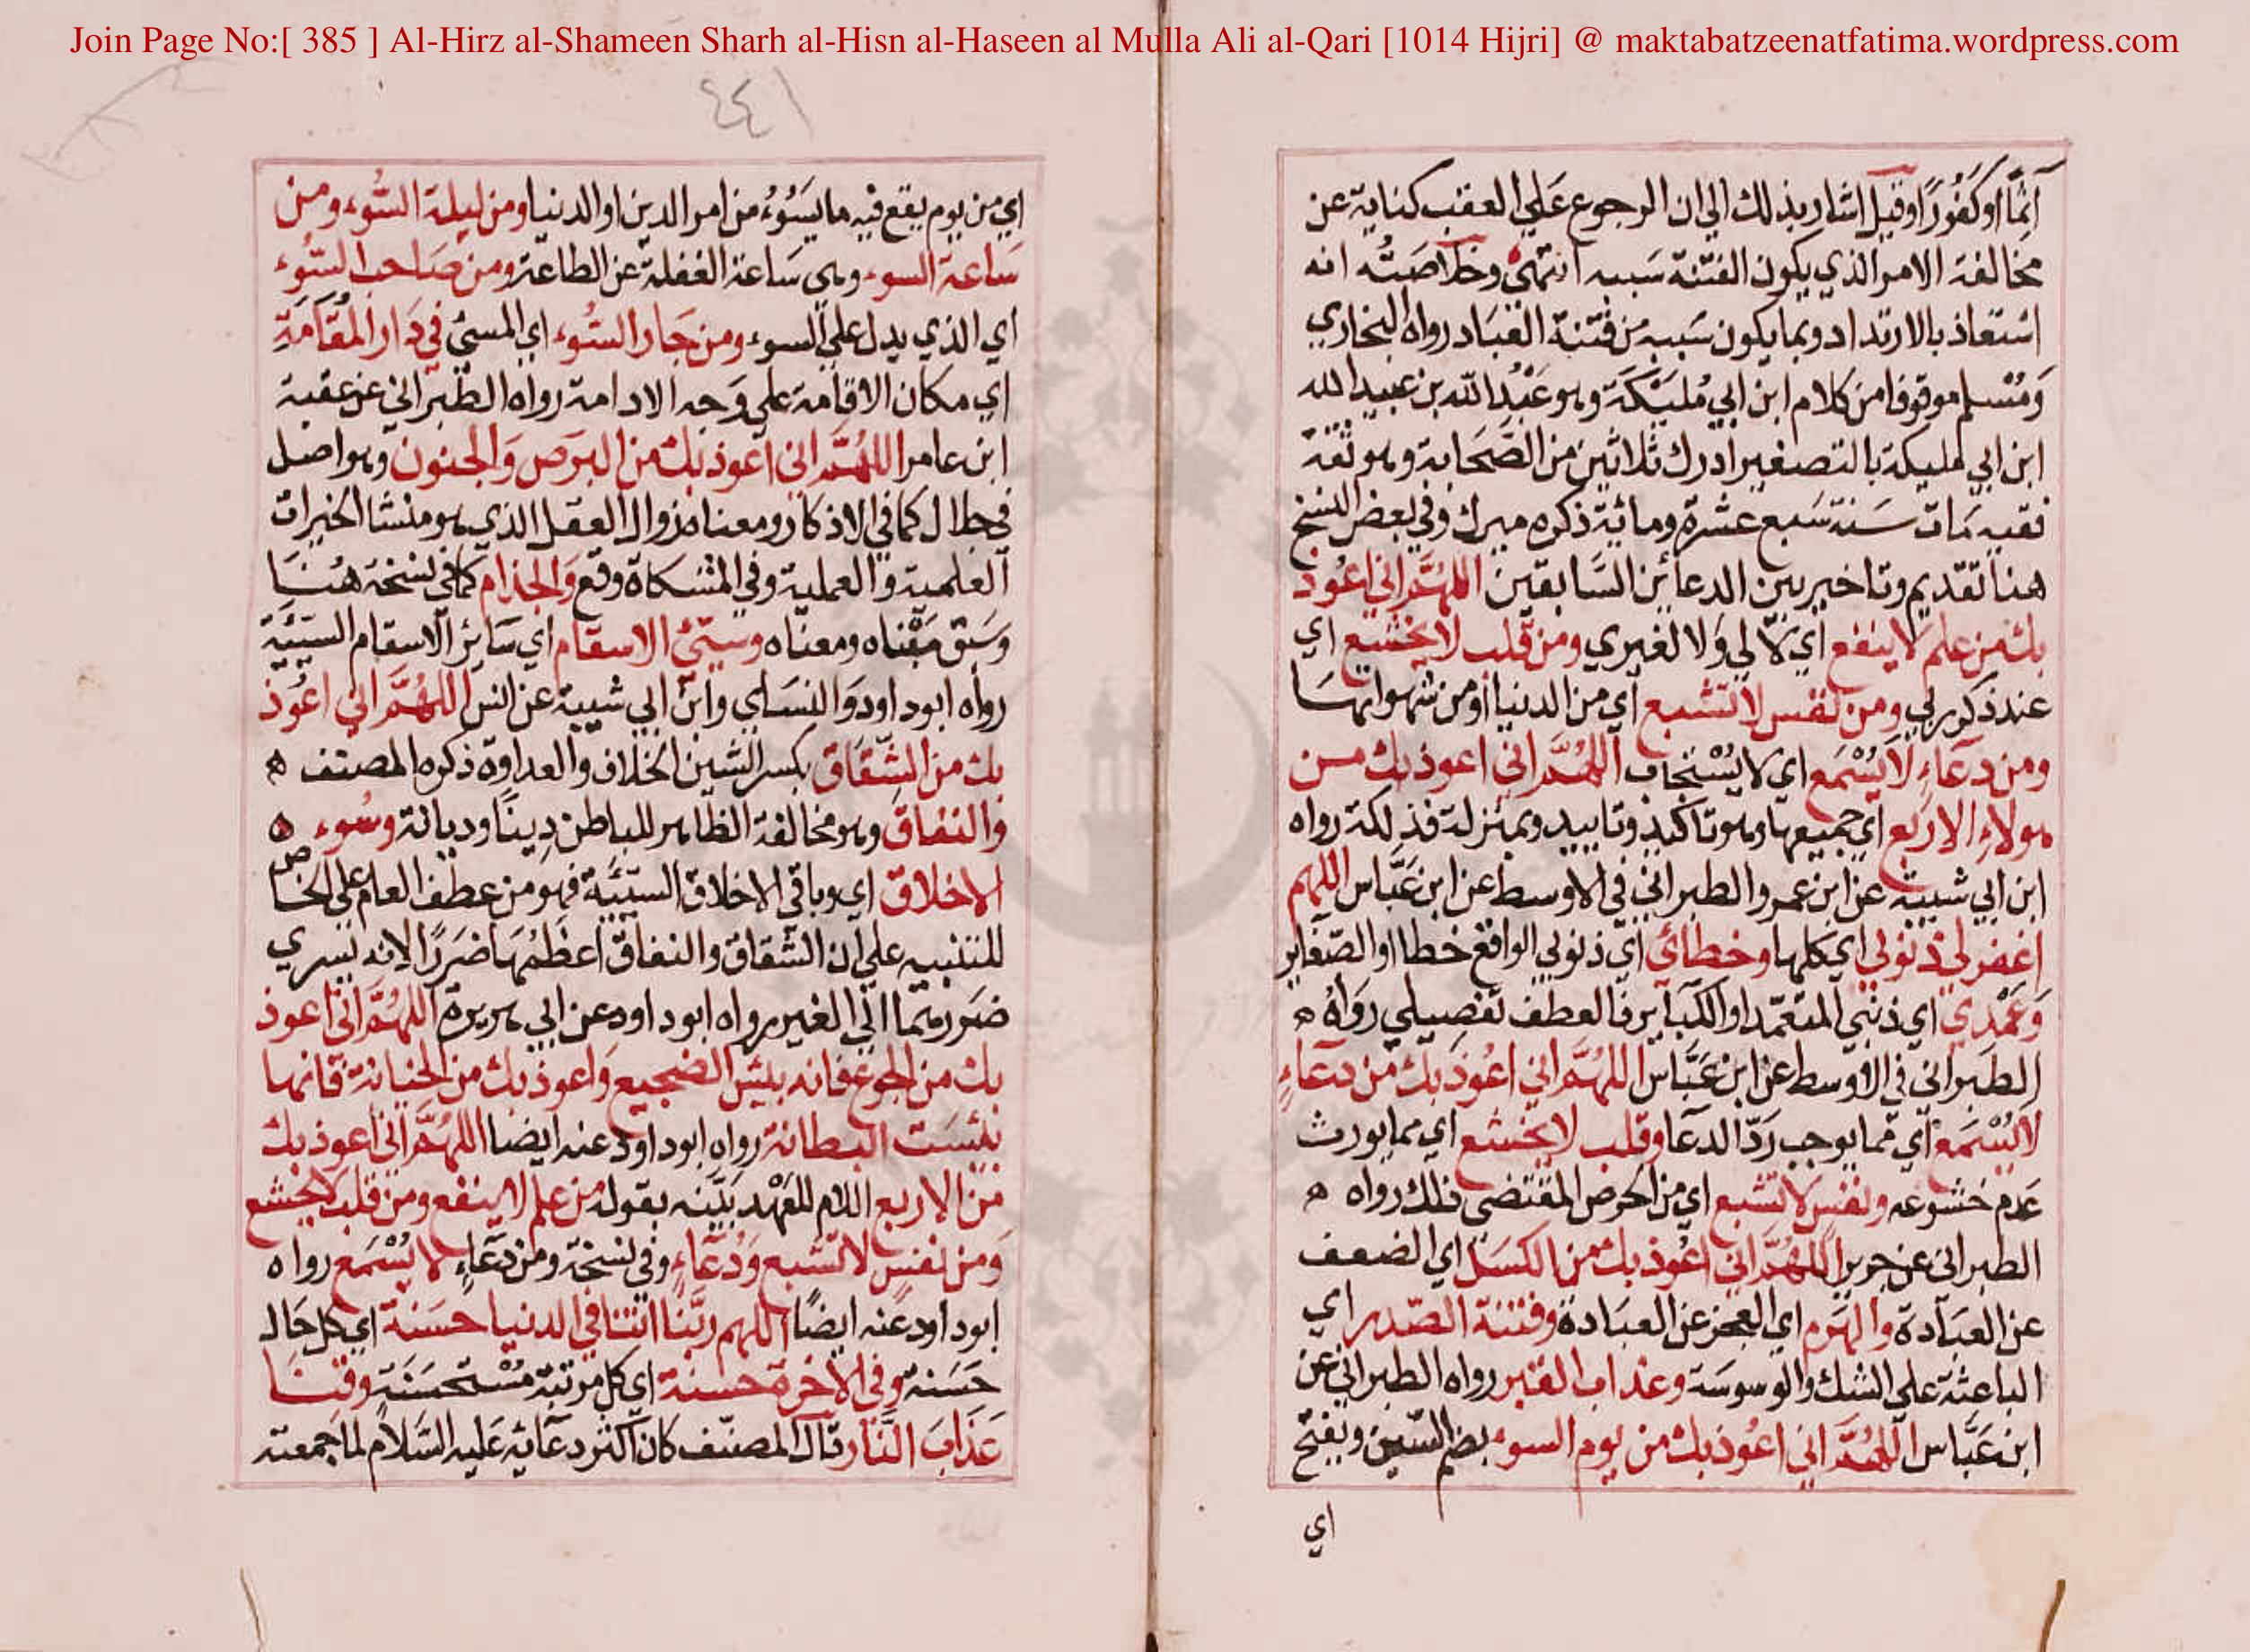 Join Page No:[ 385 ] Al-Hirz al-Shameen Sharh al-Hisn al-Haseen al Mulla Ali al-Qari [1014 Hijri] @ maktabatzeenatfatima.wordpress.com
آثما او كَفُورًا وقيل اشار بذلك الي ان الرجوع عَلي العقب كناية عن
مخالفة الامر الذي يكون الفتنة سَببه انتهى وخلاصَتُه انه
استعاذ بالارتداد وبما يكون سَببه من فتنة العبَاد رواه البخاري
وَمُسْلم موقوفا من كلام ابن ابي مُلَيْكَة وهو عَبْدُ الله بن عبيد الله
ابن ابي مليكة بالتصغير ادرك ثلاثين من الصَّحَابة وهو ثقة
فقيه مَات سَنة سَبع عشرة ومائة ذكره ميرك وفي بعض النسخ
هنا تقديم وتاخير بين الدعائين السَّابقين اللهُمَّ اني اعُوذ
بك من علم لا ينفع اي لا لي وَلا لغيري ومن قلب لا يخشع اي
عند ذكر ربي ومن نفس لا تشبع اي من الدنيا او من شهواتهَا
ومن دعَاءٍ لَا يُسْمَع اي لا يُسْتجَاب اللهُمَّ اني اعوذ بك مـن
هولاءِ الاربَع اي جميعها وهو تاكيد وتاييد وبمنزلة فذلكة رواه
ابن ابي شيبة عن ابن عمر والطبراني في الاوسط عن ابن عَبَّاس اللهم
اغفر لي ذنوبي اي كلها وخطائي اي ذنوبي الواقع خطا او الصّغاير
وَعَمْدي اي ذنبي المتعمّد او الكبَاير فالعطف تفصيلي رَوَاهُ ه
الطبَراني في الاوسط عن ابن عَبَّاس اللهُمَّ اني اعُوذ بك من دعَاءٍ
لا يُسْمَع اي مما يوجب رَدّ الدعا وقلب لا يخشع اي مما يورث
عَدم خشوعه ونفس لا تشبع اي من الحرص المقتضي ذلك رواه ه
الطبراني عن جرير اللهُمَّ اني اعُوذ بك من الكسَل اي الضعف
عن العبَادة والهَرم اي العجز عن العبَادة وفتنة الصّدر اي
الباعثة علي الشك والوسوسَة وعذاب القبر رواه الطبراني عن
ابن عَبَّاس اللهُمَّ اني اعُوذ بك من يوم السوء بضم السّين وبفتح
اي
٤٤١
اي من يوم يقع فيه ما يسَُوءُ من امر الدين او الدنيا ومن ليلة السُّوء ومن
سَاعة السوء وهي سَاعة الغفلة عن الطاعة ومن صَاحب السُّوء
اي الذي يدل علي السوء ومن جَار السُّوء اي المسيئ في دَار المُقَامَةِ
اي مكان الاقامة علي وَجه الادامة رواه الطبراني عن عقبة
ابن عامر اللهُمَّ اني اعوذ بك من البرَص وَالجنون وهو اصل
الاذكار ومعناه زوال العقل الذي هو منشا الخيرات
العلمية والعملية وفي المشكاة وقع وَالجذام كما في نسْخة هُنـَا
وسَبق مَبْناه ومعناه وسيّئ الاسقام اي سَائر الاسقام السّيّئة
رواه ابوداود وَالنسَاي وابن ابي شيبة عن انس اللهُمَّ اني اعُوذ
بك من الشّقَاق بكسر الشين الخلاف والعداوة ذكره المصنف ه
وَالنفاق وهو مخالفة الظاهر للباطن دِينًا وديانة وسُوء ه
الاخلاق اي وباقي الاخلاق السّيّئة فهو من عطف العام على الخاص
للتنبيه علي ان الشقاق والنفاق اعظمُهَا ضَررًا لانه يسري
ضَررهما الي الغير رواه ابوداود عن ابي هريرة اللهُمَّ اني اعوذ
بك من الجوع فانه بئسَ الضجيع وَاعوذ بك من الخيانة فانها
بئسَت البطانة رواه ابوداود عنه ايضا اللهُمَّ اني اعوذ بك
من الاربع اللام للعَهْد بَيَّنه بقوله من علم لا ينفع ومن قلب لا يخشع
وَمن نفسٍ لا تشبع وَدُعَاءٍ وفي نسْخة ومن دعَاءٍ لا يُسْمَع رواه
ابوداود عَنه ايضًا اللهم ربّنا اتنا في الدنيا حسَنة اي كل حَالـ
حَسَنة وفي الاخرة حسَنة اي كل مرتبَة مُسْتحسَنَة وقنـَا
عَذابَ النَّار قال المصنّف كان اكثر دعَائه عَليه السَّلام لما جمعته